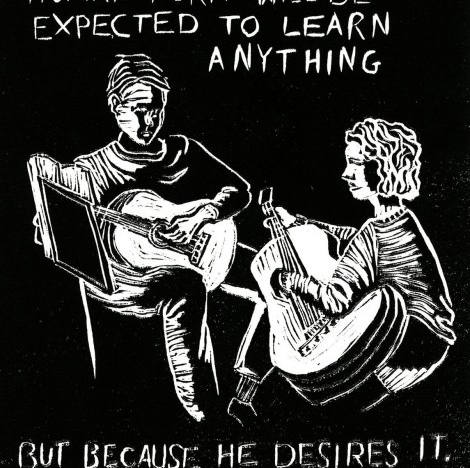 EXPECTED TO LEARN
ANYTHING
BUT BECAUSE HE DESIRES IT.